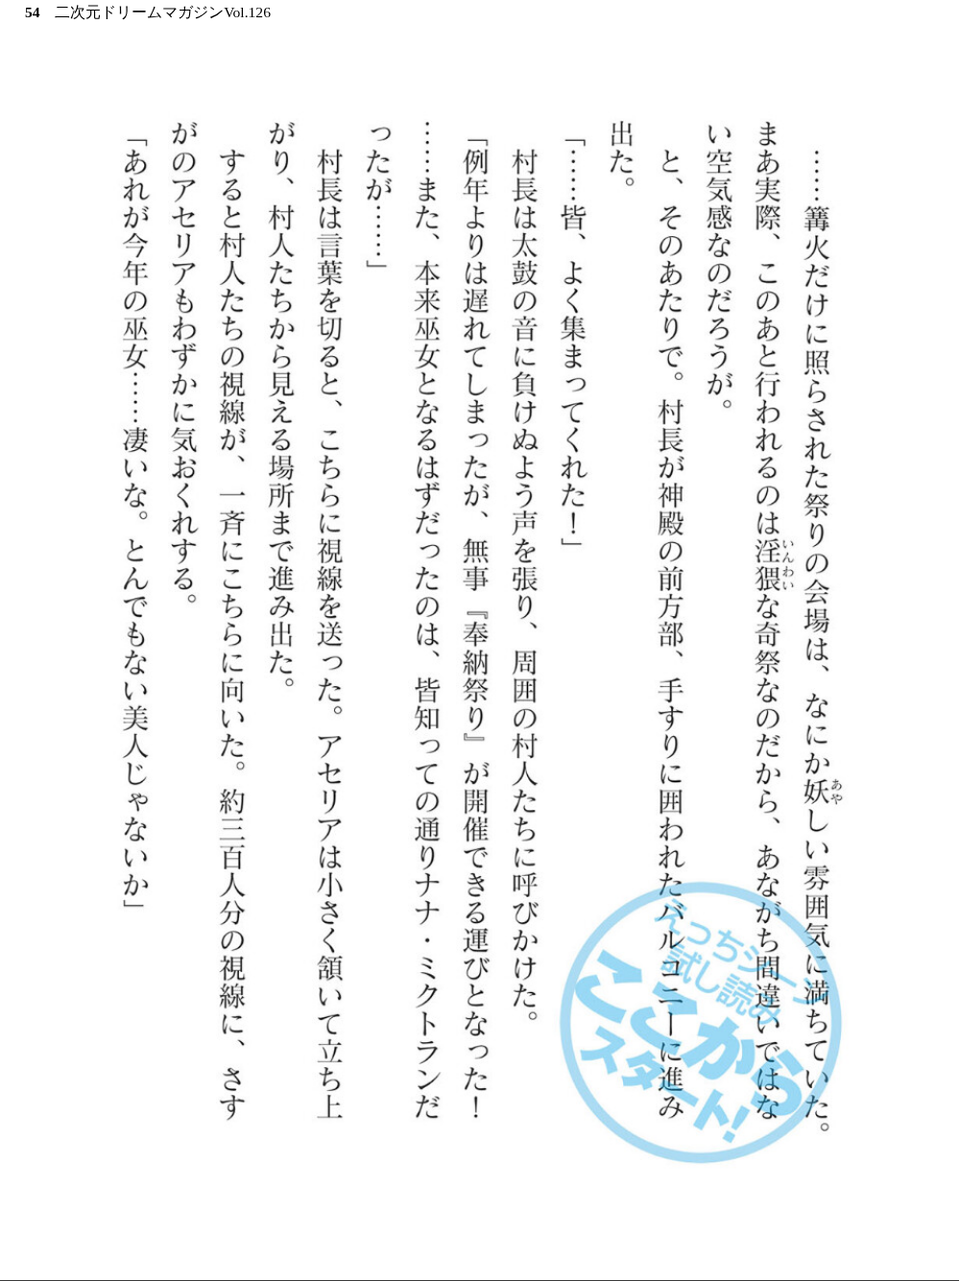 54 二次元ドリームマガジンVol.126
……篝火だけに照らされた祭りの会場は、なにか妖しい雰囲気に満ちていた。
まあ実際、このあと行われるのは淫猥な奇祭なのだから、あながち間違いではな
い空気感なのだろうが。
と、そのあたりで。村長が神殿の前方部、手すりに囲われたバルコニーに進み
出た。
「……皆、よく集まってくれた！」
村長は太鼓の音に負けぬよう声を張り、周囲の村人たちに呼びかけた。
「例年よりは遅れてしまったが、無事『奉納祭り』が開催できる運びとなった！
……また、本来巫女となるはずだったのは、皆知っての通りナナ・ミクトランだ
ったが……」
村長は言葉を切ると、こちらに視線を送った。アセリアは小さく頷いて立ち上
がり、村人たちから見える場所まで進み出た。
すると村人たちの視線が、一斉にこちらに向いた。約三百人分の視線に、さす
がのアセリアもわずかに気おくれする。
「あれが今年の巫女……凄いな。とんでもない美人じゃないか」
あや
いんわい
えっちシーン
試し読み
ここから
スタート！